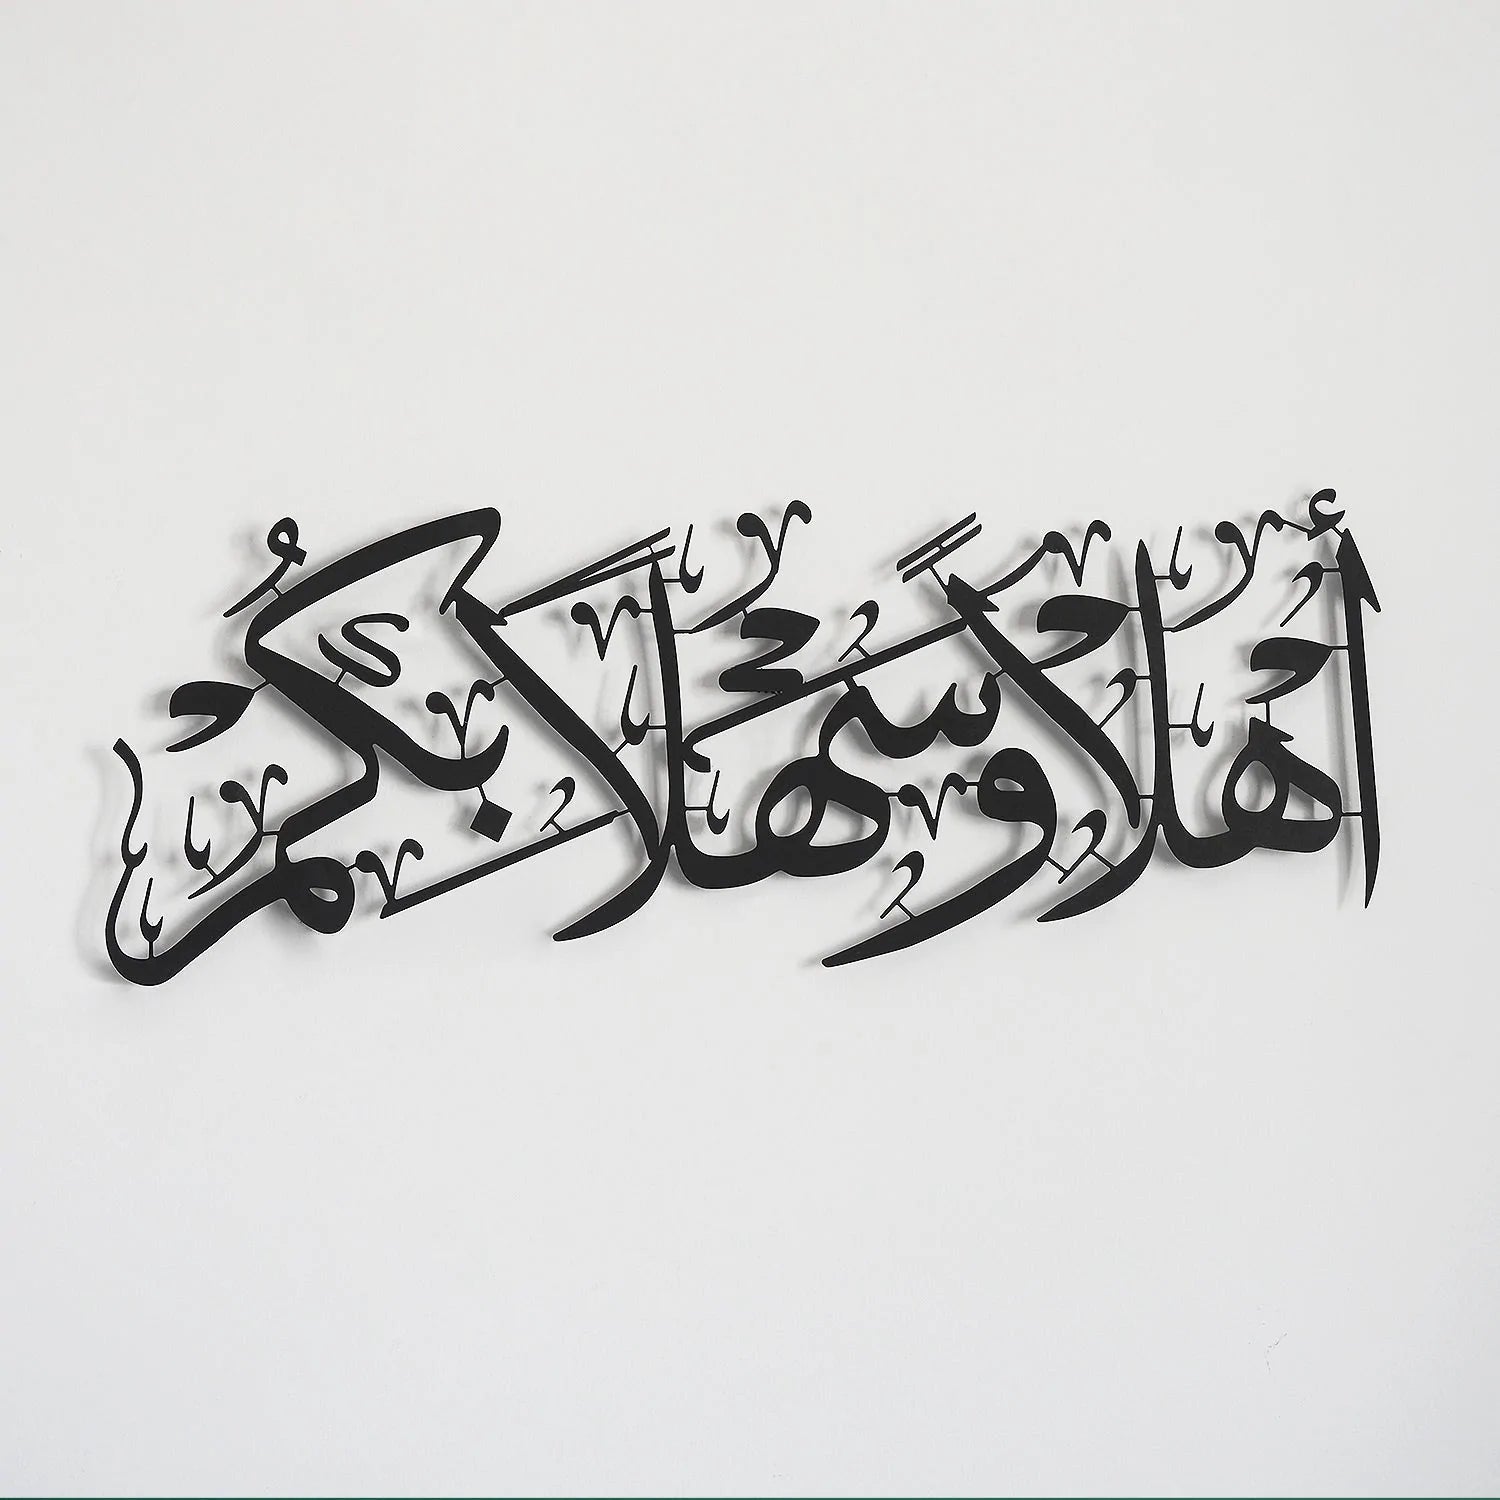 أهلا وسهلا بكم